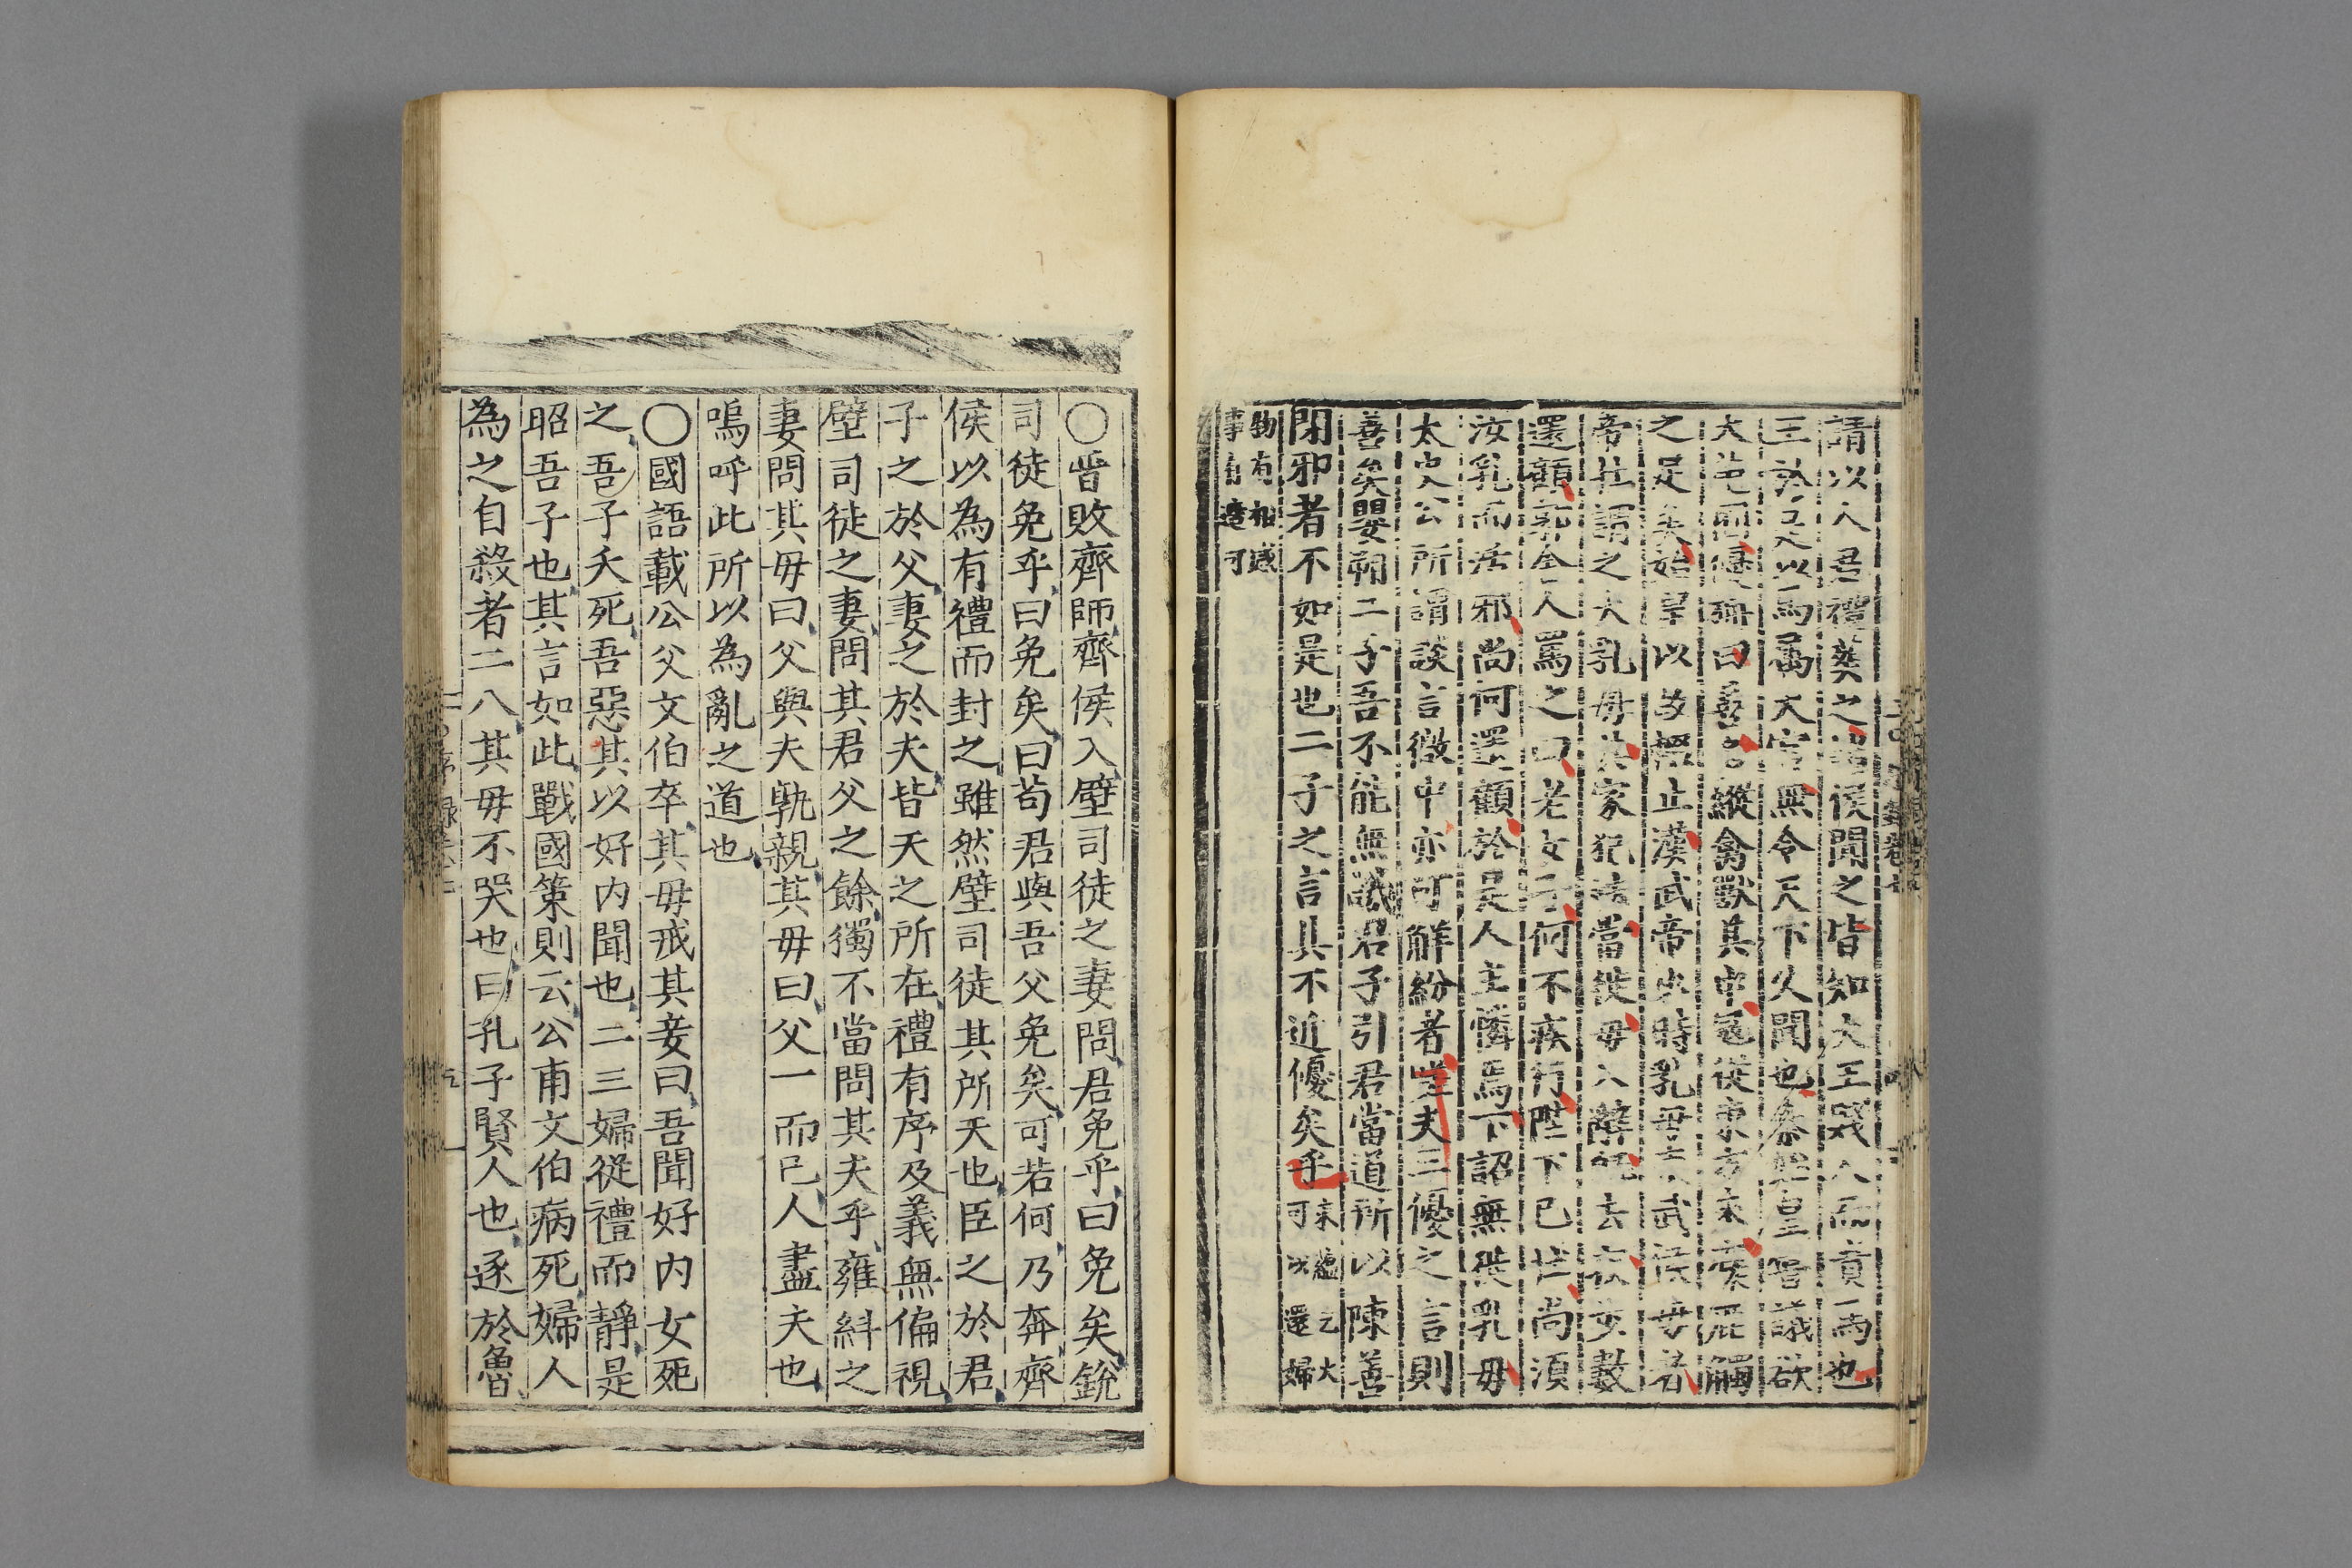 請以人君禮葬之諸侯聞之皆知大王賤人而貴馬也
王於是以馬屬太官無令天下久聞也秦始皇嘗議欲
大苑囿優旃曰善多縱禽獸其中寇從東方來麋鹿觸
之足矣始皇以故輟止漢武帝少時乳母武帝母者
帝壯謂之大乳母其家犯法當徙母入辭即去疾步數
還顧郭舍人罵之曰老女子何不疾行陛下已壯尚須
汝乳而活邪尚何還顧於是人主憐焉下詔無徙乳母
太史公所謂談言微中亦可解紛者邪夫三優之言則
善矣嬰朔二子吾不能無譏君子引君當道所以陳善
閉邪者不如是也二子之言其不近優矣乎
大婦
可以還婦
物有相感
事有自
〇晉敗齊師齊侯入壁司徒之妻問君免乎曰免矣銳
司徒免乎曰免矣曰苟君與吾父免矣可若何乃奔齊
侯以為有禮而封之雖然壁司徒其所天也臣之於君
子之於父妻之於夫皆天之所在禮有序及義無偏視
壁司徒之妻問其君父之餘獨不當問其夫乎雍糾之
妻問其毋曰父與夫孰親其毋曰父一而已人盡夫也
嗚呼此所以為亂之道也
〇國語載公父文伯卒其毋戒其妾曰吾聞好內女死
之吾子夭死吾惡其以好內聞也二三婦從禮而靜是
昭吾子也其言如此戰國策則云公甫文伯病死婦人
為之自殺者二八其毋不哭也曰孔子賢人也逐於魯